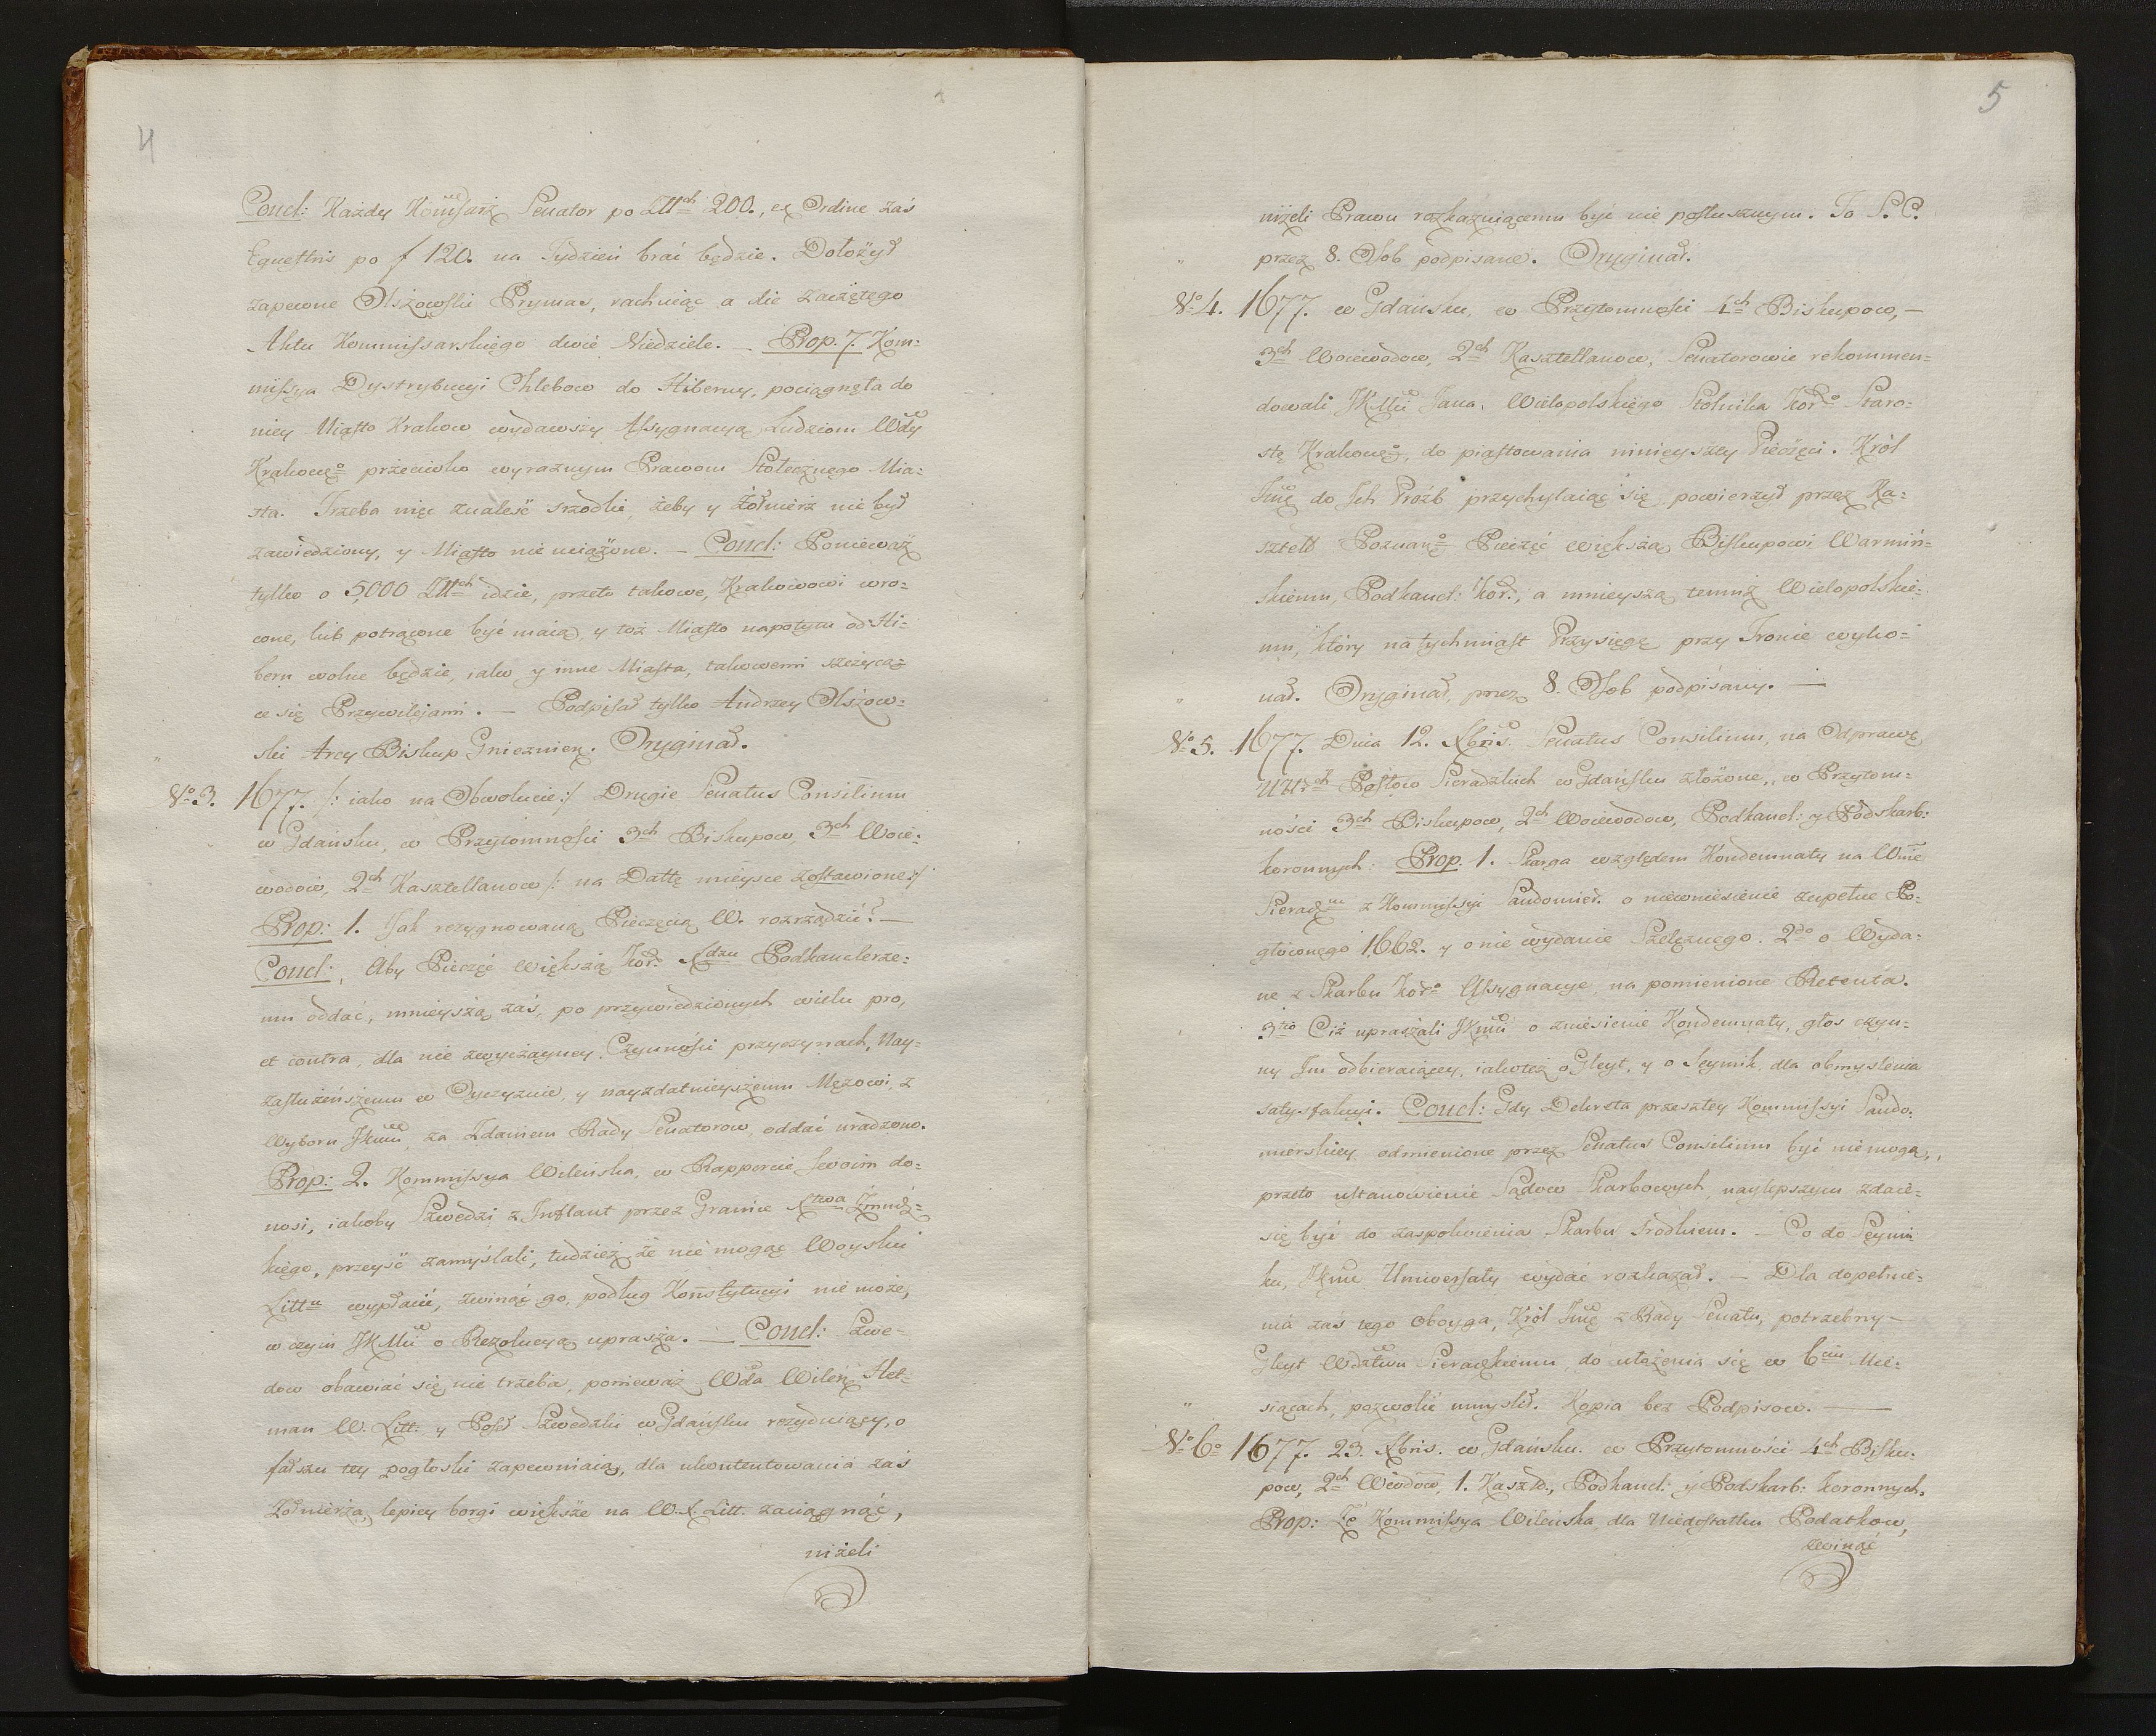 4
Concl: Każdy Kom̃sarz Senator po Złł^ch 200., ex Ordine zaś
Equestris po f 120. na Tydzień brać będzie. Dołożył
zapewne Olszowski Prymas, rachuiąc a die zaczętego
Aktu Kommissarskiego dwie Niedziele. — Prop. 7. Kom=
missya Dystrybucyi Chlebow do Hiberny, pociągnęła do
niey Miasto Krakow wydawszy Assygnacyą Ludziom Wdy
Krakowg^o przeciwko wyraznym Prawom Stołecznego Mia=
sta. Trzeba więc znaleść srzodki, żeby y Żołnierz nie był
zawiedziony, y Miasto nie uciążone. — Concl: Ponieważ
tylko o 5,000 Złł^ch idzie, przeto takowe, Krakowowi wro=
cone, lub potrącone być maią, y toż Miasto napotym od Hi=
bern wolne będzie, iako y inne Miasta, takowemi szczycą=
ce się Przywilejami. — Podpisał tylko Andrzey Olszow=
ski Arcy Biskup Gnieznień. Oryginał.
N^o 3. 1677. /: iako na Obwolucie :/ Drugie Senatus Consilium
w Gdańsku, w Przytomności 3^ch Biskupow, 3^ch Woie=
wodow, 2^ch Kasztellanow /: na Dattę mieysce zostawione :/
Prop: 1. Jak rezygnowaną Pieczęcią W. rozrządzić? —
Concl: Aby Pieczęć większą Kor. Xdzu Podkanclerze=
mu oddać, mnieyszą zaś, po przywiedzionych wielu pro,
et contra, dla nie zwyczayney Czynności przyczynach, Nay=
zasłużeńszemu w Oyczyznie, y nayzdatnieyszemu Mężowi, z
Wyboru JKmci, za Zdaniem Rady Senatorow, oddać uradzono.
Prop: 2. Kommissya Wileńska, w Rapporcie swoim do=
nosi, iakoby Szwedzi z Inflant przez Granice Xtwa Żmudz=
kiego, przeyść zamyślali, tudzież że nie mogąc Woysku
Litt^u wypłacić, zwinąć go, podług Konstytucyi nie może,
w czym JKMci o Rezolucyą uprasza. — Concl: Szwe=
dow obawiać się nie trzeba, ponieważ Wda Wileń. Het=
man W. Litt: y Poseł Szwedzki w Gdańsku rezyduiący, o
fałszu tey pogłoski zapewniaią, dla ukontentowania zaś
Żołnierza, lepiey borgi większe na W. X. Litt. zaciągnąć,
niżeli
5
niżeli Prawu rozkazuiącemu być nie posłusznym. To S. C.
przez 8. Osob podpisane. Oryginał.
N^o 4. 1677. w Gdańsku, w Przytomności 4^ch Biskupow, —
3^ch Woiewodow, 2^ch Kasztellanow, Senatorowie rekommen=
dowali JKMci Jana Wielopolskiego Stolnika Kor^o Staro=
stę Krakowg^o, do piastowania mnieyszey Pieczęci. Król
Jmć do Ich Proźb przychylaiąc się, powierzył przez Ka=
sztell Poznan^o Pieczęć większą Biskupowi Warmiń=
skiemu, Podkancl: Kor., a mnieyszą temuż Wielopolskie=
mu, który natychmiast Przysięgę przy Tronie wyko=
nał. Oryginał, przez 8. Osob podpisany. —
N^o 5. 1677. Dnia 12. Xbris. Senatus Consilium, na Odprawę
UUr^ch Posłow Sieradzkich w Gdańsku złożone, w Przytom=
ności 3^ch Biskupow, 2^ch Woiewodow, Podkancl: y Podskarb:
koronnych. Prop. 1. Skarga względem Kondemnaty na Wwie
Sieradz^m z Kommissyi Sandomier. o niewniesienie zupełne Po=
głownego 1662. y o nie wydanie Szelężnego. 2^do o Wyda=
ne z Skarbu Kor^o Assygnacye, na pomienione Retenta.
3^tio Ciż upraszali JKmci o zniesienie Kondemnaty, głos czyn=
ny Im odbieraiącey, iakoteż o Gleyt, y o Seymik, dla obmyślenia
satysfakcyi. Concl: Gdy Dekreta przeszłey Kommissyi Sando=
mierskiey odmienione przez Senatus Consilium być nie mogą,
przeto ustanowienie Sądow Skarbowych, naylepszym zdaie=
się być do zaspokoienia Skarbu srodkiem. — Co do Seymi=
ku, JKmć Uniwersały wydać rozkazał. — Dla dopełnie=
nia zaś tego oboyga, Król Jmć z Rady Senatu, potrzebny —
Gleyt Wdztwu Sieradzkiemu do ułożenia się w 6^ciu Mie=
siącach, pozwolić umyslił. Kopia bez Podpisow. —
N^o 6^o 1677. 23. Xbris. w Gdańsku. w Przytomności 4^ch Bisku=
pow, 2^ch Wwodow, 1. Kaszt., Podkancl: y Podskarb: koronnych.
Prop: Że Kommissya Wileńska, dla Niedostatku Podatkow,
zwinąć